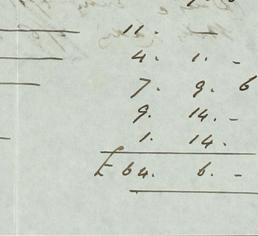 11. —
4. 1. -
7. 9. 6
9. 14. -
1. 14.
£ 64. 6. -